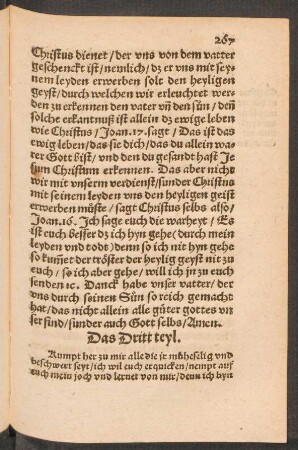 267
Christus dienet / der vns von dem vatter
geschenckt ist / nemlich / dz er vns mit sey-
nem leyden erwerben solt den heyligen
geyst / durch welchen wir erleuchtet wer-
den zu erkennen den vater vñ den sün / deñ
solche erkantnuß ist allein dz ewige leben
wie Christus / Joan. 17. sagt / Das ist das
ewig leben / das sie dich / das du allein wa-
rer Gott bist / vnd den du gesandt hast Je
sum Christum erkennen. Das aber nicht
wir mit vnserm verdienst / sunder Christus
mit seinem leyden vns den heyligen geist
erwerben müste / sagt Christus selbs also /
Joan. 16. Ich sage euch die warheyt / Es
ist euch besser dz ich hyn gehe (durch mein
leyden vnd todt) denn so ich nit hyn gehe
so kum̃et der tröster der heylig geyst nit zu
euch / so ich aber gehe / will ich jn zu euch
senden ꝛc. Danck habe vnser vatter / der
vns durch seinen Sün so reich gemacht
hat / das nicht allein alle güter gottes vn
ser sind / sunder auch Gott selbs / Amen.
Das Dritt teyl.
Kumpt her zu mir alle die jr mühselig vnd
beschwert seyt / ich wil euch erquicken / nempt auff
euch mein joch vnd lernet von mir / denn ich byn